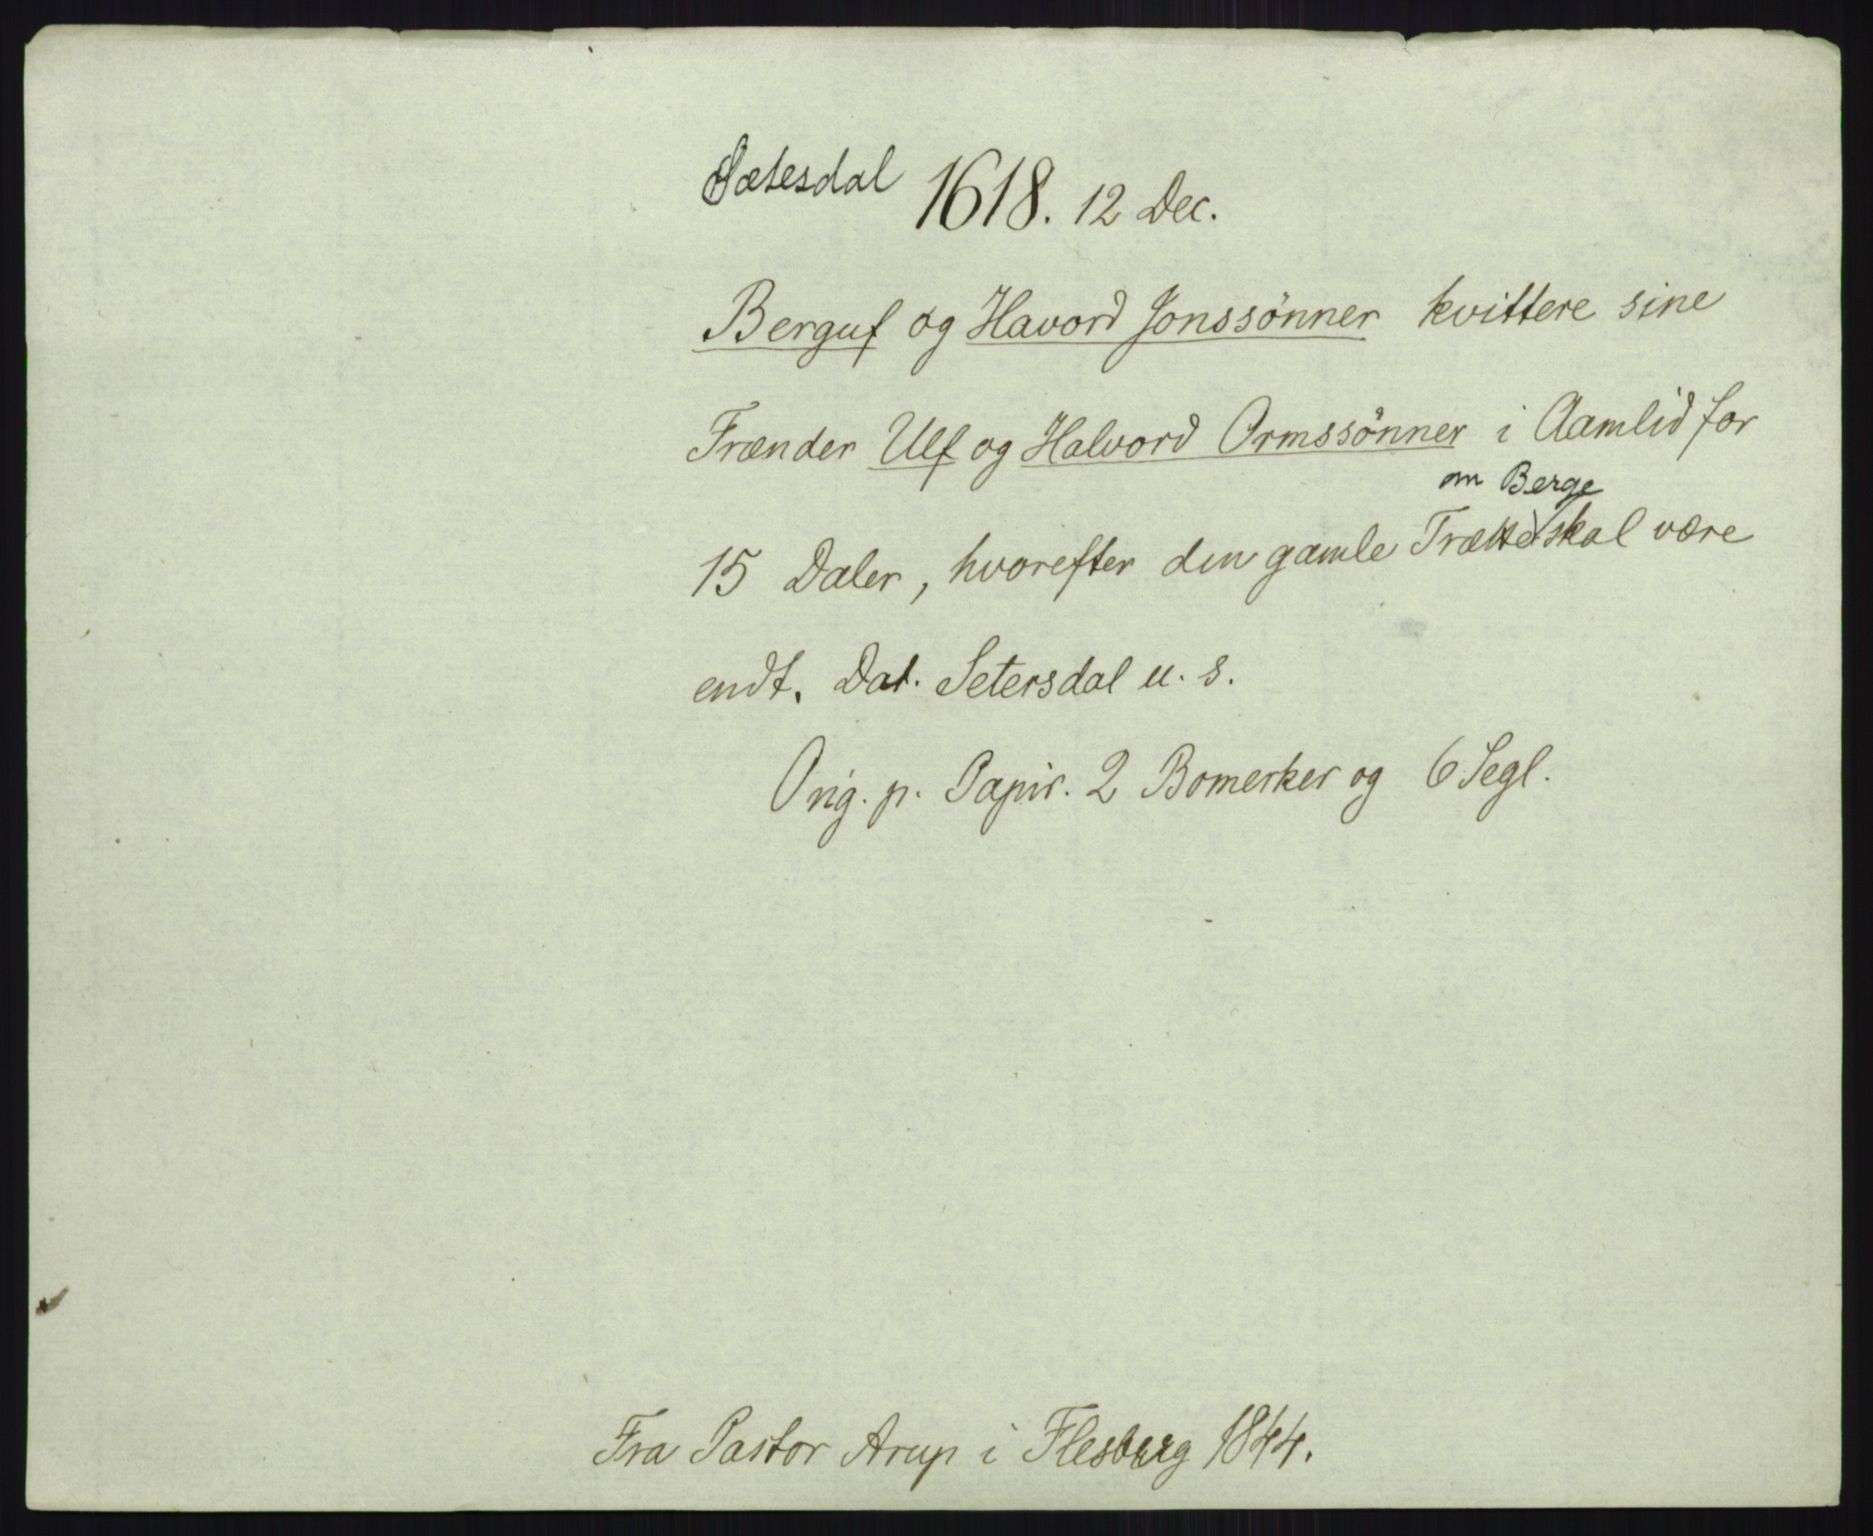 Sætesdal 1618. 12 Dec.
Berguf og Havord Jonssönner kvittere sine
Frænder Ulf og Halvord Ormssönner i Aamlid for
om Berge
15 Daler, hvorefter den gamle Trætte skal være
endt. Dat. Setersdal u. s.
Orig. p. Papir. 2 Bomerker og 6 Segl.
Fra Pastor Arup i Flesberg 1844.